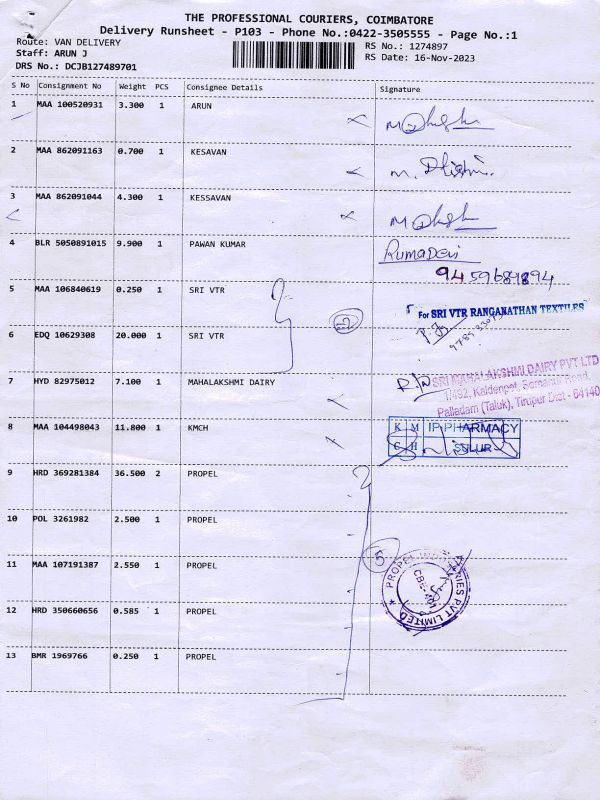 THE PROFESSIONAL COURIERS, COIMBATORE
Delivery Runsheet - P103 - Phone No.:0422-3505555 - Page No.:1
Route: VAN DELIVERY
RS No.: 1274897
Staff: ARUN J
RS Date: 16-Nov-2023
DRS No.: DCJB127489701
S No Consignment No Weight PCS Consignee Details Signature
1 MAA 100520931 3.300 1 ARUN
2 MAA 862091163 0.700 1 KESAVAN
3 MAA 862091044 4.300 1 KESSAVAN
4 BLR 5050891015 9.900 1 PAWAN KUMAR Rumadevi
9459684894
5 MAA 106840619 0.250 1 SRI VTR
For SRI VTR RANGANATHAN TEXTILES
2
6 EDQ 10629308 20.000 1 SRI VTR
7 HYD 82975012 7.100 1 MAHALAKSHMI DAIRY
SRI MAHALAKSHMI DAIRY PVT LTD
1/492, Kaldenpot, Road,
Palladam (Taluk), Tirupur Dist - 64140
8 MAA 104498043 11.800 1 KMCH
K M IP PHARMACY
C H SULUR
9 HRD 369281384 36.500 2 PROPEL
10 POL 3261982 2.500 1 PROPEL
5
11 MAA 107191387 2.550 1 PROPEL
PROPEL INDUSTRIES PVT LIMITED
CBE-401
12 HRD 350660656 0.585 1 PROPEL
13 BMR 1969766 0.250 1 PROPEL